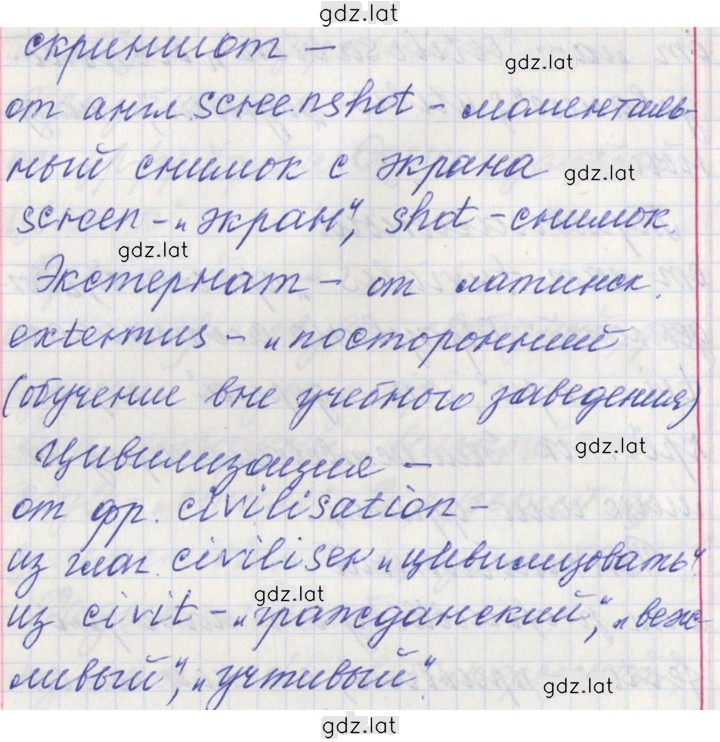 gdz.lat
скриншот –
gdz.lat
от англ. screenshot – моменталь-
ный снимок с экрана
gdz.lat
screen – „экран“, shot – снимок.
gdz.lat
Экстернат – от латинск.
externus – „посторонний
(обучение вне учебного заведения)
gdz.lat
Цивилизация –
от фр. civilisation –
из глаг. civiliser „цивилизовать“.
gdz.lat
из civit – „гражданский“, „веж-
ливый“, „учтивый“.
gdz.lat
gdz.lat